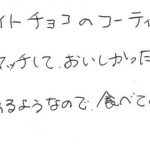 イトチョコのコーティ
マッチして、おいしかった
あるようなので、食べて